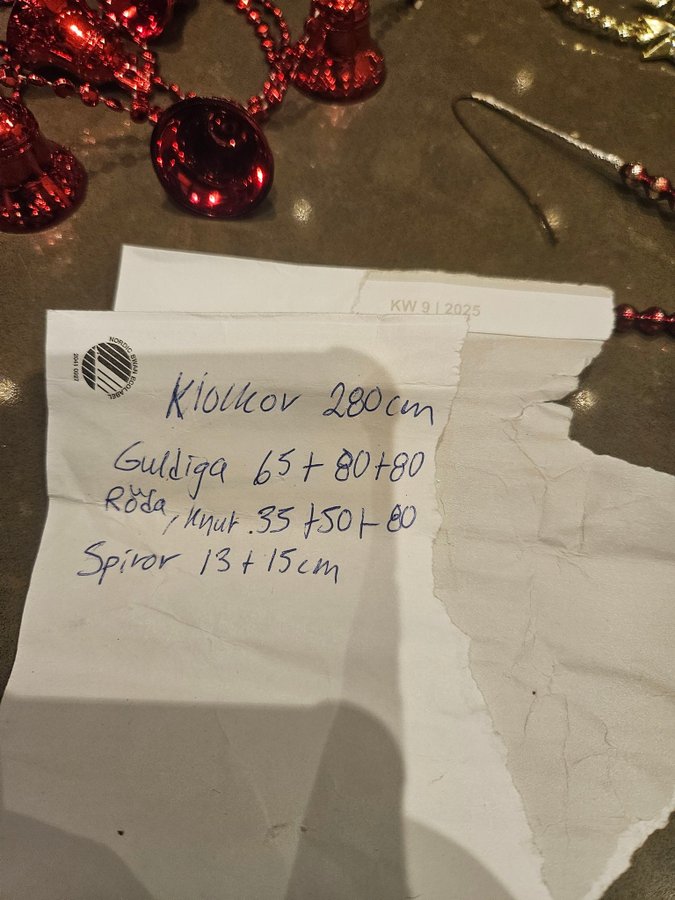 KW 9 | 2025
NORDIC SWAN ECOLABEL
Klockor 280cm
Guldiga 65 + 80 + 80
Röda, Knut. 35 + 50 + 80
Spiror 13 + 15cm